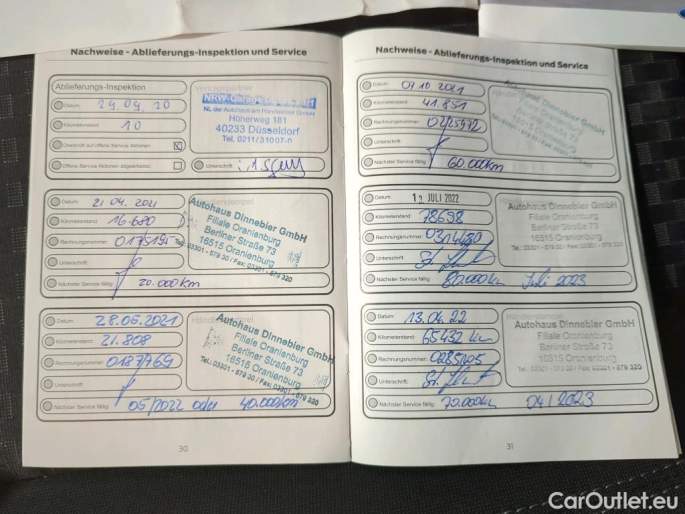 Nachweise - Ablieferungs-Inspektion und Service
Ablieferungs-Inspektion
Datum: 29.09.20
Kilometerstand: 10
Überprüft auf offene Service Aktionen
Offene Service Aktionen abgearbeitet
Unterschrift:
Höherweg 181
40233 Düsseldorf
Tel. 0211/31007-0
Datum: 21.04.2021
Kilometerstand: 16.680
Rechnungsnummer:
Unterschrift:
Nächster Service fällig: 20.000km
Autohaus Dinnebier GmbH
Filiale Oranienburg
Berliner Straße 73
16515 Oranienburg
Tel.: 03301 - 579 30 / Fax: 03301 - 579 320
Datum: 28.06.2021
Kilometerstand: 21.808
Rechnungsnummer: 0187769
Unterschrift:
Nächster Service fällig: 05/2022 oder 40.000km
Autohaus Dinnebier GmbH
Filiale Oranienburg
Berliner Straße 73
16515 Oranienburg
Tel.: 03301 - 579 30 / Fax: 03301 - 579 320
30
Nachweise - Ablieferungs-Inspektion und Service
Datum: 07.10.2021
Kilometerstand: 41.851
Rechnungsnummer:
Unterschrift:
Nächster Service fällig: 60.000km
Autohaus Dinnebier GmbH
Filiale Oranienburg
Berliner Straße 73
16515 Oranienburg
Datum: JULI 2022
Kilometerstand: 78698
Rechnungsnummer:
Unterschrift:
Nächster Service fällig: 80.000km Juli 2023
Autohaus Dinnebier GmbH
Filiale Oranienburg
Berliner Straße 73
16515 Oranienburg
Tel.: 03301 - 579 30 / Fax: 03301 - 579 320
Datum: 13.04.22
Kilometerstand: 65432 km
Rechnungsnummer:
Unterschrift:
Nächster Service fällig: 70.000km 04/2023
Autohaus Dinnebier GmbH
Filiale Oranienburg
Berliner Straße 73
16515 Oranienburg
Tel.: 03301 - 579 30 / Fax: 03301 - 579 320
31
CarOutlet.eu